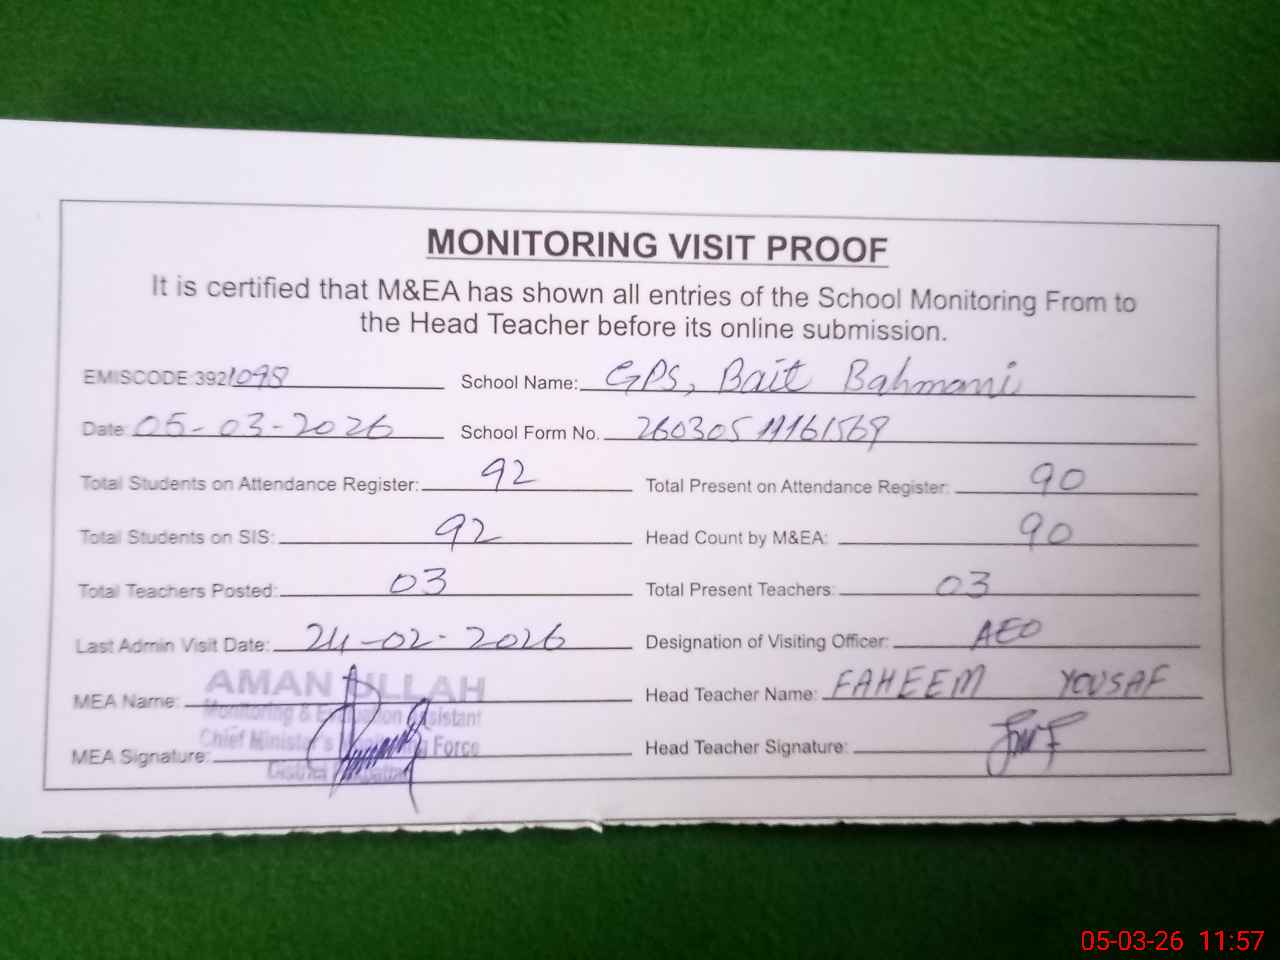 MONITORING VISIT PROOF
It is certified that M&EA has shown all entries of the School Monitoring From to
the Head Teacher before its online submission.
EMISCODE:3921098 School Name: GPS, Bait Bahmani
Date: 05-03-2026 School Form No. 260305
Total Students on Attendance Register: 92 Total Present on Attendance Register: 90
Total Students on SIS: 92 Head Count by M&EA: 90
Total Teachers Posted: 03 Total Present Teachers: 03
Last Admin Visit Date: 24-02-2026 Designation of Visiting Officer: AEO
AMAN ULLAH
MEA Name: Head Teacher Name: FAHEEM YOUSAF
Monitoring & Evaluation Assistant
Chief Minister's Monitoring Force
MEA Signature: Head Teacher Signature:
District
05-03-26 11:57